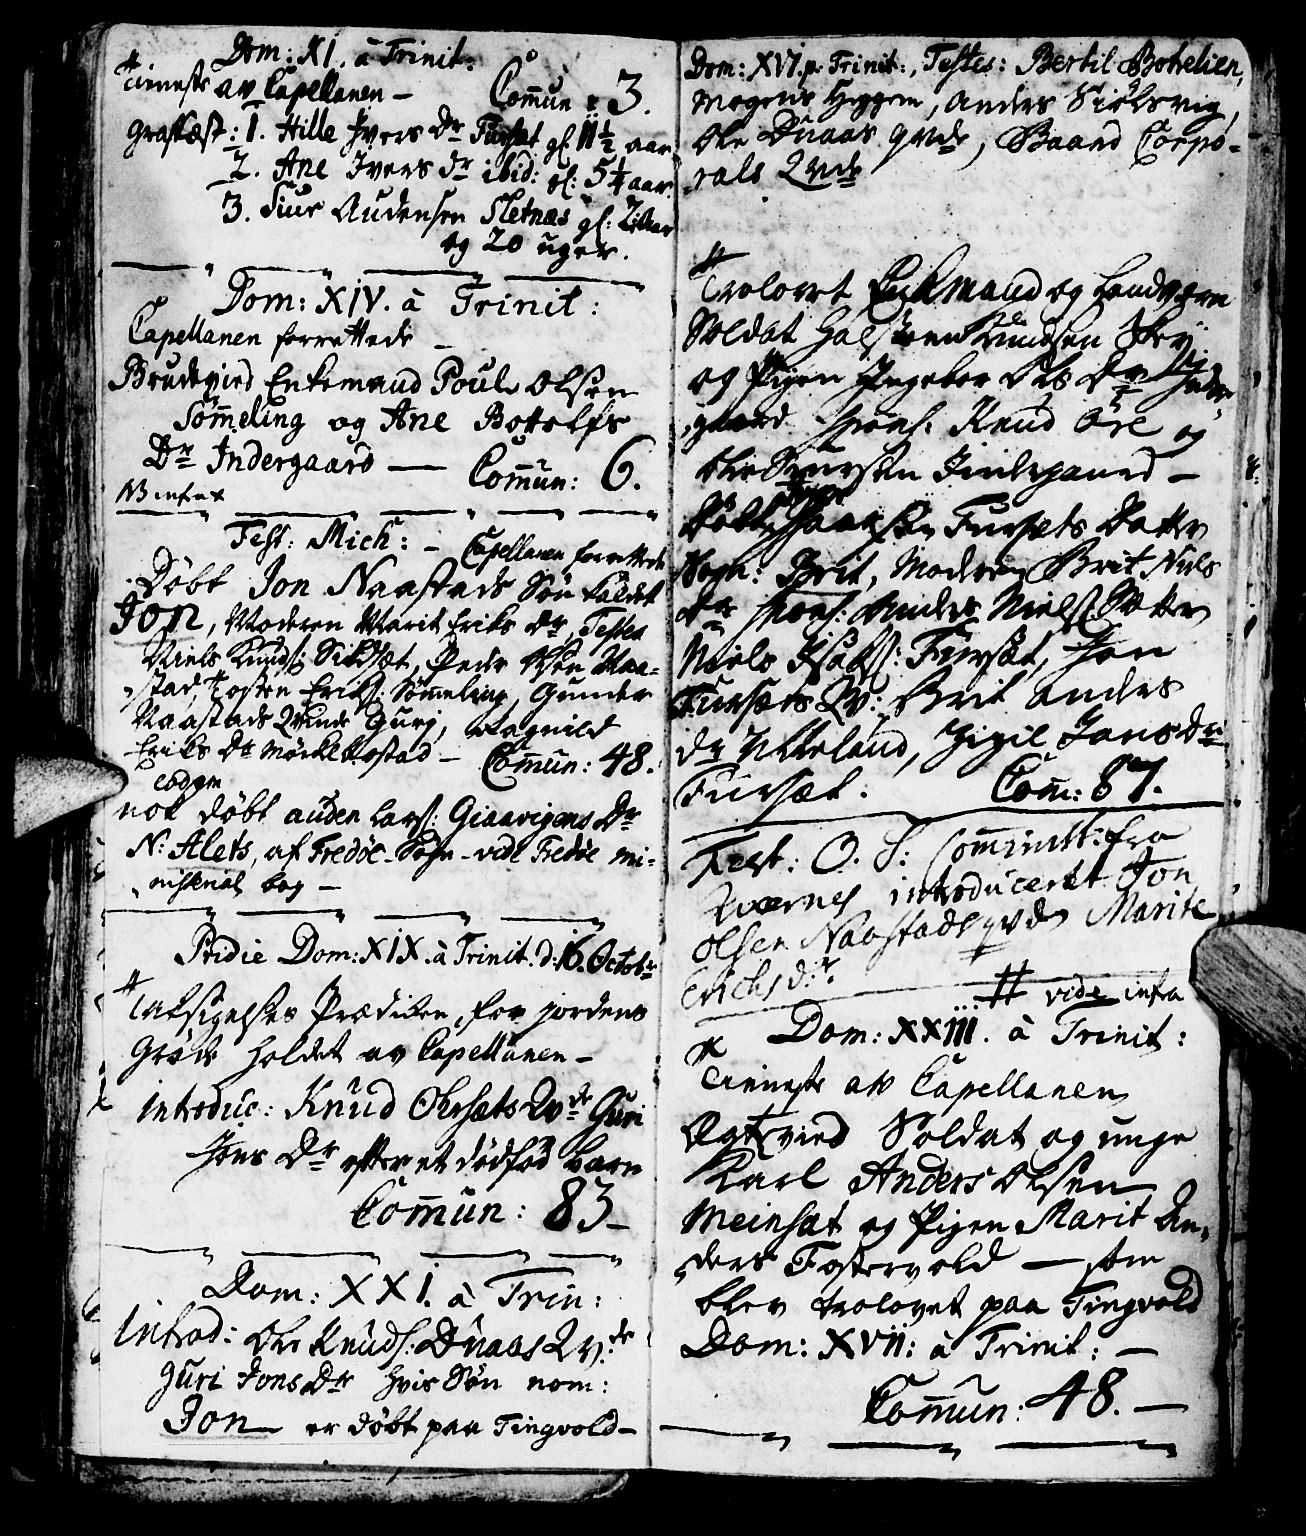 Dom: XI. à Trinit:
Tienests av Capellanen – Com̄un: 3.
Grafkast: 1. Hille Ivers Dr Fursæt gl. 11½ aar
2. Ane Ivers dr ibid: gl: 5¼ aar
3. Siur Audensen Sletnæs gl: 2 Aar
og 20 uger.
Dom: XIV. à Trinit:
Capellanen forrettede –
Brudevied Enkemand Poul Olsen
Søm̄eling og Ane Botolfs
Dr Indergaard — Com̄un: 6.
NB infra
Fest: Mich: – Capellanen forrettede
Døbt Jon Naastads Søn kaldet
Jon, Moderen Marit Eriks Dr, Testes
Niels Knuds: Sildset, Peder Olsen Naa-
stad, Tosten Eriks: Søm̄eling, Gunder
Naastads Qvinde Gurj, Ragnild
Eriks Dr Mörkkostad – Com̄un: 48.
eodem
nok døbt auden Lars: Giaavigens Dr
N: Alets, af Fredøe-Sogn-vide Fredøe mi-
nisterial bog –
Pridie Dom: XIX. à Trinit. d: 16. Octobr
Taksigelses Prædiken, for jordens
Grøde holdet av Capellanen –
introduc: Knud Ohrsæts Qvde Guri
Jons Dr efter et dødfød barn
Com̄un: 83 –
Dom: XXI. à Trin:
Introd: Ole Knuds: Dŭaas Qv:de
Guri Jons Dr hvis Søn nom:
Jon er døbt paa Tingvold –
Dom: XVI. p. Trinit:, Testes: Bertil Botelien,
Mogens Heggem, Anders Siölsvig,
Ole Dŭaas qvde, Baard Corpo-
rals Qvde
Trolovet Enkemand og Landværn
Soldat Halsteen Knudsen Skey
og Pigen Ingebor Ols Dr Inder-
gaard spons: Knud Öre og
Ole Siursen Indergaard –
Døbt Isaksen Fursets Datter
Nom: Brit, Moderen Brit Niels
Dr spons: Anders Niels: Sæter
Niels Isaks: Fursæt, Jon
Fursæts Qv: Brit Anders
dr Ulveland, Jigil Jons Dr
Fursæt. Com̄: 87.
Fest: O. S: Com̄init: fra
Qvernes introduceret Jon
Olsen Naastads qvde Marite
Erichs d:r
# vide infra
Dom: XXIII. à Trinit:
Tienests av Capellanen
Ægtevied Soldat og unge
Karl Anders Olsen
Meinsæt og Pigen Marit An-
ders Fostervold — som
blev trolovet paa Tingvold
Dom: XVII: à Trinit: —
Com̄un: 48. —